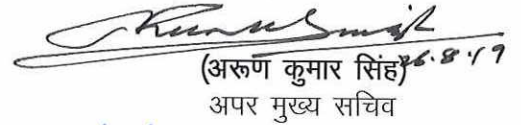 (अरूण कुमार सिंह) 26.8.19
अपर मुख्य सचिव